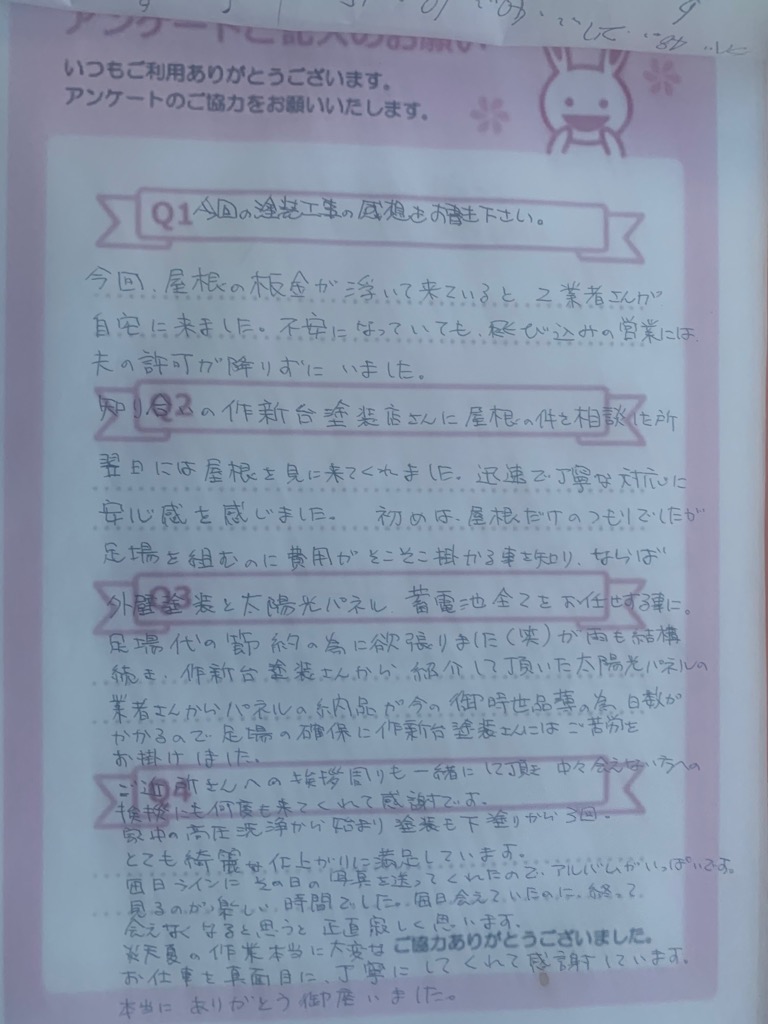 アンケートご記入のお願い
いつもご利用ありがとうございます。
アンケートのご協力をお願いいたします。
Q1 今回の塗装工事の感想をお書き下さい。
今回、屋根の板金が浮いて来ていると2業者さんが
自宅に来ました。不安になっていても、飛び込みの営業には
夫の許可が降りずにいました。
Q2
知り合いの作新台塗装店さんに屋根の件を相談した所
翌日には屋根を見に来てくれました。迅速で丁寧な対応に
安心感を感じました。 初めは、屋根だけのつもりでしたが
足場を組むのに費用がそこそこ掛かる事を知り、ならば
Q3
外壁塗装と太陽光パネル、蓄電池全てをお任せする事に。
足場代の節約の為に欲張りました(笑)が雨も結構
続き、作新台塗装さんから紹介して頂いた太陽光パネルの
業者さんからパネルの納品が今の御時世品薄の為、日数が
かかるので足場の確保に作新台塗装さんにはご苦労を
お掛けしました。
ご近所さんへの挨拶周りも一緒にして頂き 中々会えない方への
挨拶にも何度も来てくれて感謝です。
家中の高圧洗浄から始まり塗装も下塗りから3回。
とても綺麗な仕上がりに満足しています。
毎日ラインにその日の写真を送ってくれたので、アルバムがいっぱいです。
見るのが楽しい時間でした。毎日会えていたのに、終って
会えなくなると思うと正直寂しく思います。
炎天夏の作業本当に大変な
ご協力ありがとうございました。
お仕事を真面目に、丁寧にしてくれて感謝しています。
本当にありがとう御座いました。